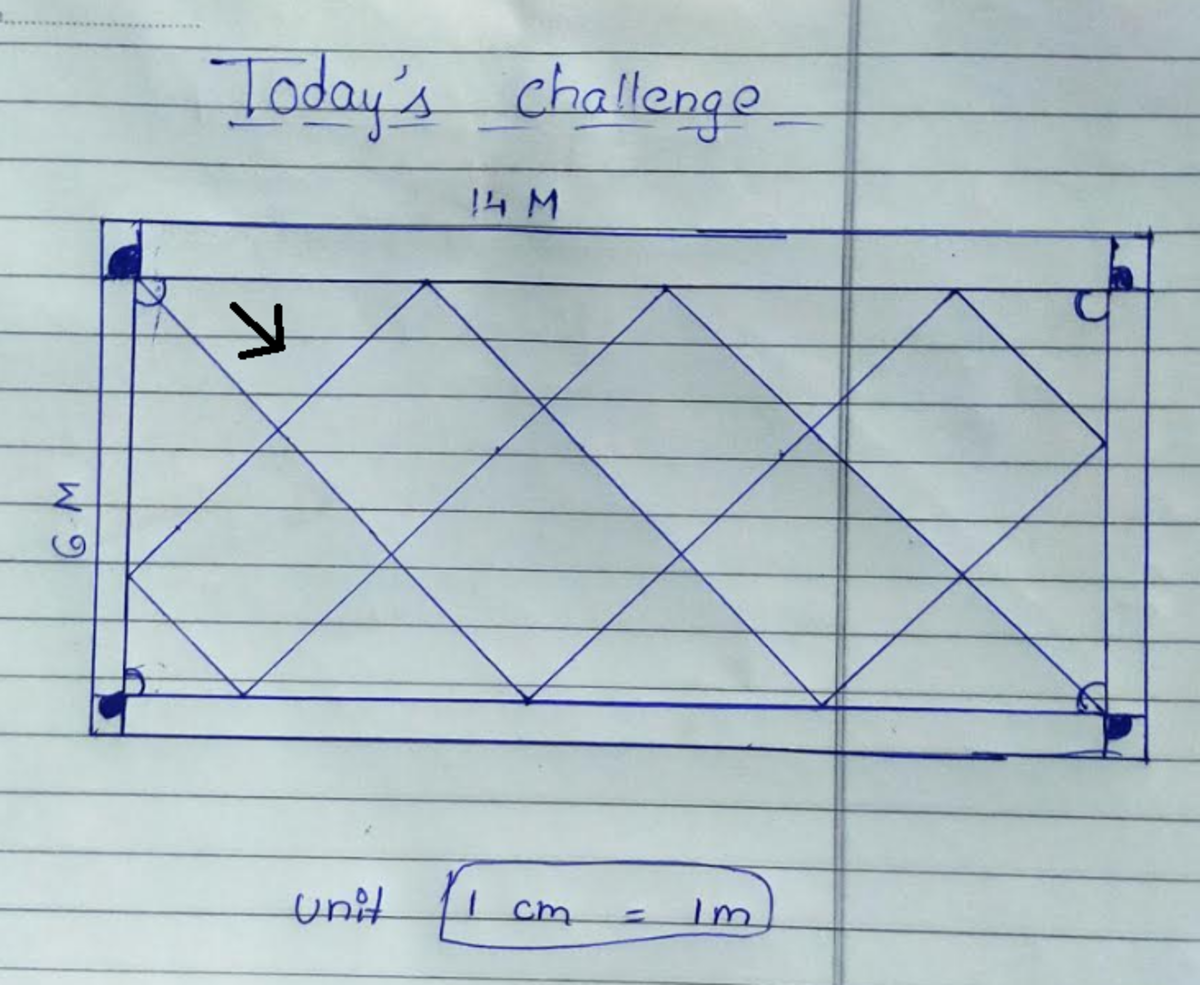 Today's challenge
14 M
6 M
unit 1 cm = 1m